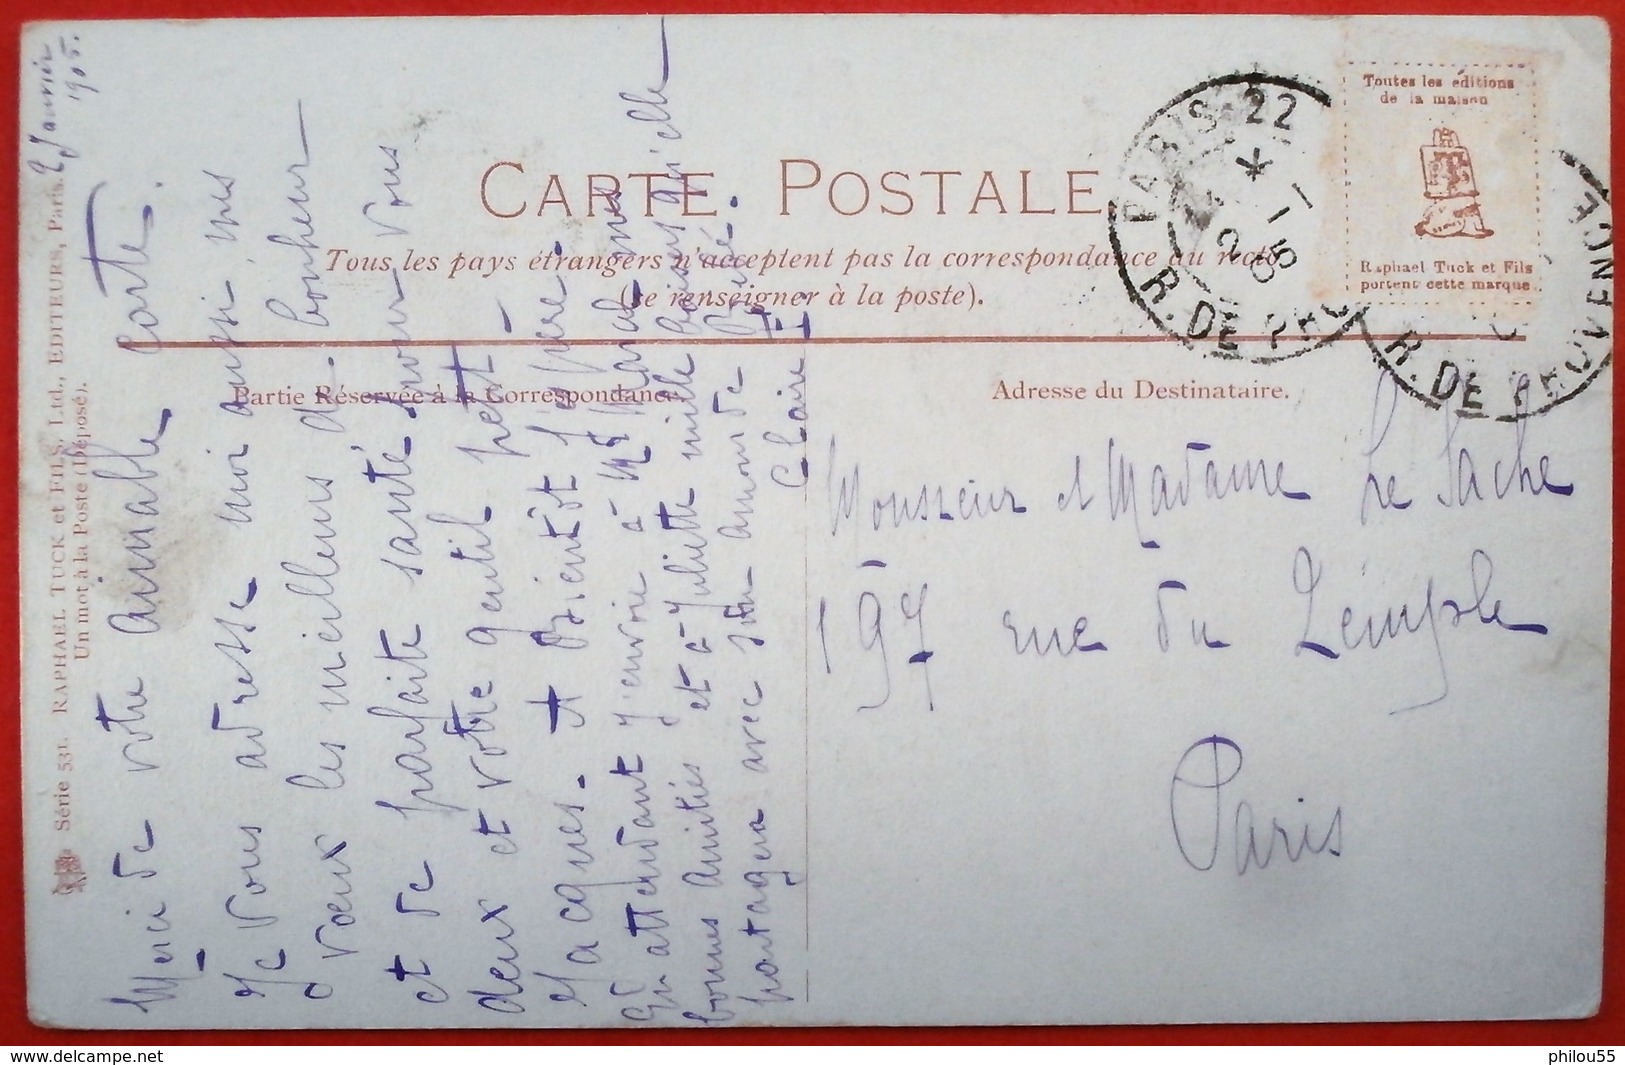 2 Janvier
1905.
Série 531. RAPHAEL TUCK et FILS, Ltd., EDITEURS, Paris.
Un mot à la Poste (Déposé).
CARTE POSTALE
Tous les pays étrangers n'acceptent pas la correspondance au recto
(se renseigner à la poste).
Partie Réservée à la Correspondance.
Adresse du Destinataire.
Toutes les éditions
de la maison
Raphael Tuck et Fils
portent cette marque
PARIS 22
R. DE PROVENCE
R. DE PROVENCE
Merci de votre aimable carte.
Je vous adresse moi aussi, mes
vœux les meilleurs de bonheur
et de parfaite santé pour vous
deux et votre gentil petit
Jacques. A Bientôt j'espère.
En attendant j'envoie à Me
bonnes amitiés et à Juliette mille baisers qu'elle
partagera avec son amour de
Claire
Monsieur et Madame Le Sache
197 rue du Temple
Paris
philou55